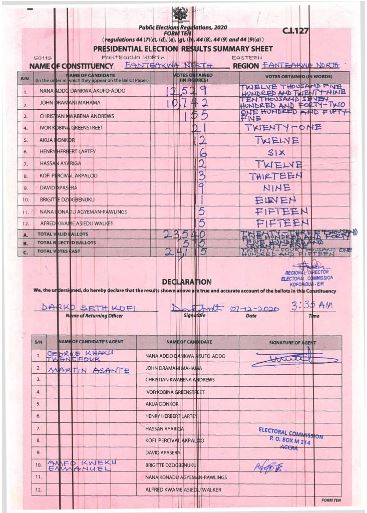 Public Elections Regulations, 2020
FORM TEN
C.I.127
(regulations 44 (7)(c), (d), (e), (g), (h), 44 (8), 44 (9) and 44 (9)(a))
PRESIDENTIAL ELECTION RESULTS SUMMARY SHEET
FANTEAKWA NORTH EASTERN
NAME OF CONSTITUENCY FANTEAKWA NORTH REGION FANTEAKWA NORTH
S/N NAME OF CANDIDATE VOTES OBTAINED VOTES OBTAINED (IN WORDS)
(In the order in which they appear on the Ballot Paper) (IN FIGURES)
1. NANA ADDO DANKWA AKUFO-ADDO 12,529 TWELVE THOUSAND FIVE HUNDRED AND TWENTY-NINE
2. JOHN DRAMANI MAHAMA 10,742 TEN THOUSAND SEVEN HUNDRED AND FORTY-TWO
3. CHRISTIAN KWABENA ANDREWS 155 ONE HUNDRED AND FIFTY-FIVE
4. IVOR KOBINA GREENSTREET 21 TWENTY-ONE
5. AKUA DONKOR 12 TWELVE
6. HENRY HERBERT LARTEY 6 SIX
7. HASSAN AYARIGA 12 TWELVE
8. KOFI PERCIVAL AKPALOO 13 THIRTEEN
9. DAVID APASERA 9 NINE
10. BRIGITTE DZOGBENUKU 11 ELEVEN
11. NANA KONADU AGYEMAN-RAWLINGS 15 FIFTEEN
12. ALFRED KWAME ASIEDU WALKER 15 FIFTEEN
A. TOTAL VALID BALLOTS 23540
B. TOTAL REJECTED BALLOTS
C. TOTAL VOTES CAST
REGIONAL DIRECTOR
ELECTORAL COMMISSION
KOFORIDUA - E/R
DECLARATION
We, the undersigned, do hereby declare that the results shown above are a true and accurate account of the ballots in this Constituency
DARKO SETH KOFI 07-12-2020 3:35 AM
Name of Returning Officer Signature Date Time
S/N NAME OF CANDIDATE'S AGENT NAME OF CANDIDATE SIGNATURE OF AGENT
1. GEORGE KWAKU NANA ADDO DANKWA AKUFO-ADDO
2. MARTIN ASANTE JOHN DRAMANI MAHAMA
3. CHRISTIAN KWABENA ANDREWS
4. IVOR KOBINA GREENSTREET
5. AKUA DONKOR
6. HENRY HERBERT LARTEY
7. HASSAN AYARIGA
8. KOFI PERCIVAL AKPALOO
9. DAVID APASERA
10. KWEKU EMMANUEL BRIGITTE DZOGBENUKU
11. NANA KONADU AGYEMAN-RAWLINGS
12. ALFRED KWAME ASIEDU WALKER
ELECTORAL COMMISSION
P. O. BOX M 214
ACCRA
FORM TEN